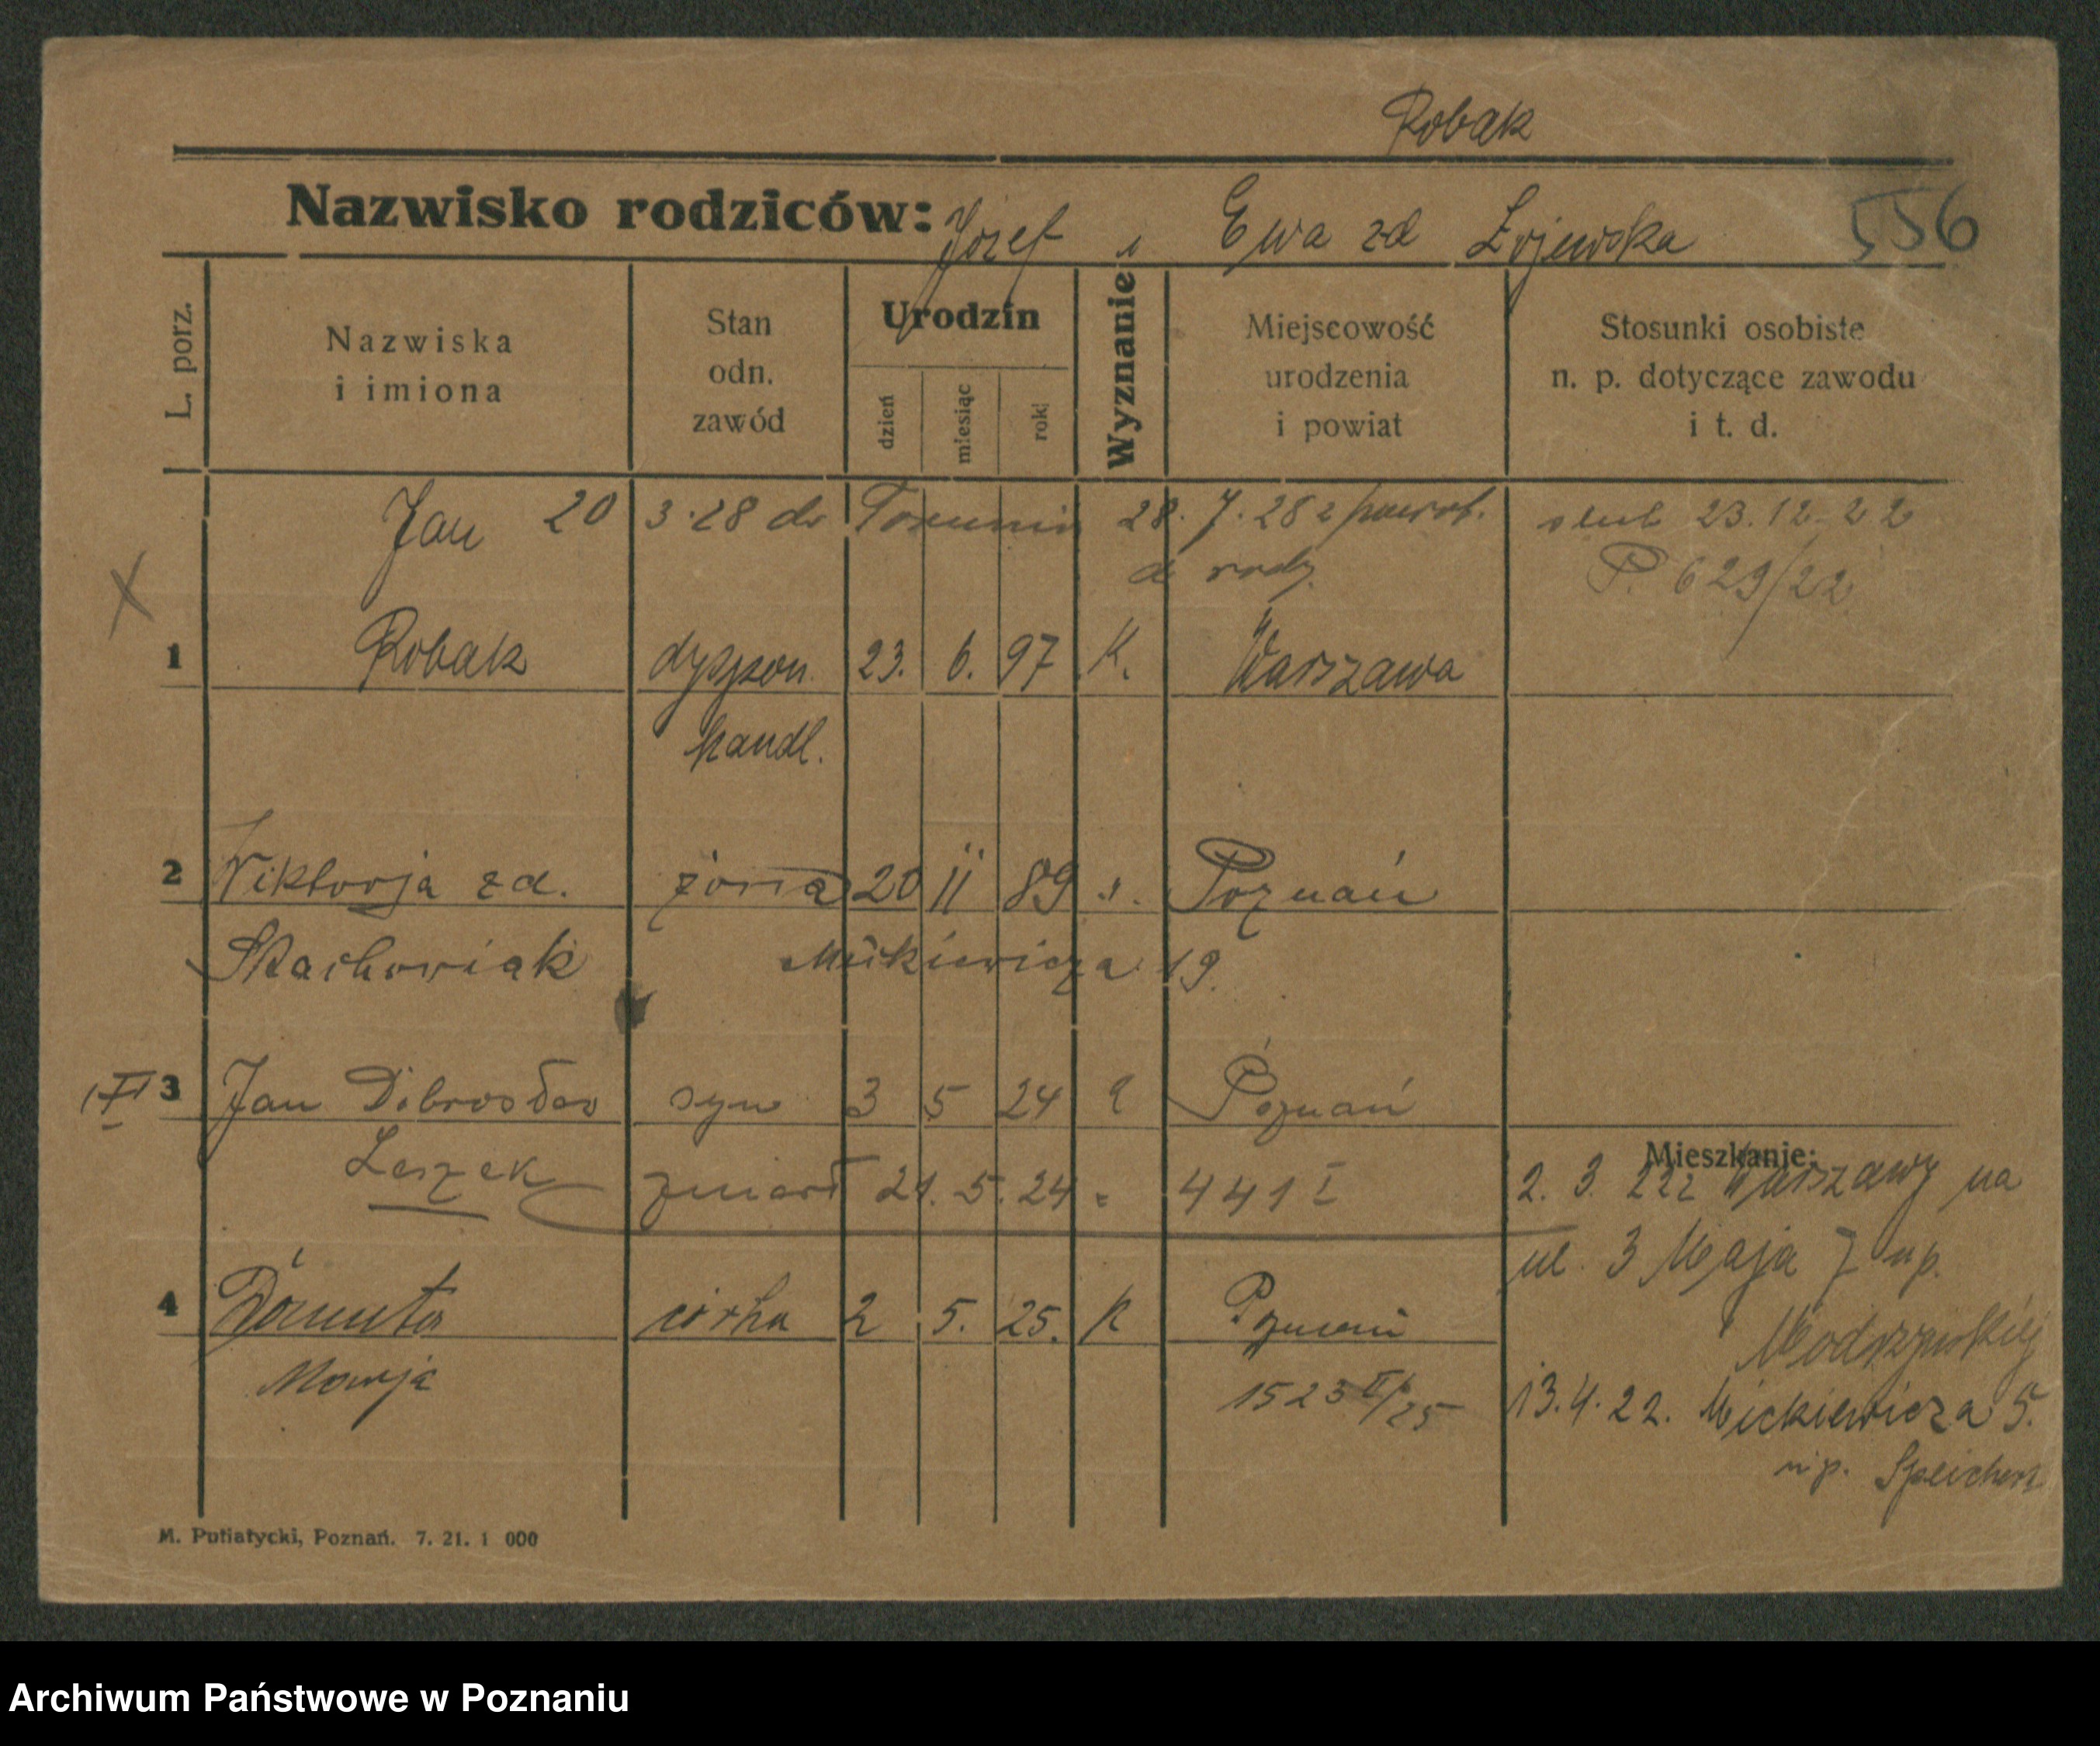 Robak
Nazwisko rodziców: Józef i Ewa zd Łojewska 556
L. porz.
Nazwiska i imiona
Stan odn. zawód
Urodzin
dzień
miesiąc
rok
Wyznanie
Miejscowość urodzenia i powiat
Stosunki osobiste n. p. dotyczące zawodu i t. d.
Jan 20 3.28 do Torunia 28. 7. 28 z powrot. slub 23.12.22
X do rodz. P. 629/22
1 Robak dyspon. 23. 6. 97 K. Warszawa
handl.
2 Wiktorja zd. żona 20 11 89 Poznań
Stachowiak Mickiewicza 19.
3 Jan syn 3 5 24 Poznań
Leszek zmarł 21. 5. 24 441 I
Mieszkanie:
2. 3. 22 z Warszawy na
ul. 3 Maja 7 u p.
4 Danuta córka 2 5. 25. K Poznań
Marja 1523 II/25
13.4.22. Mickiewicza 5.
u p.
M. Putiatycki, Poznań. 7. 21. 1 000
Archiwum Państwowe w Poznaniu